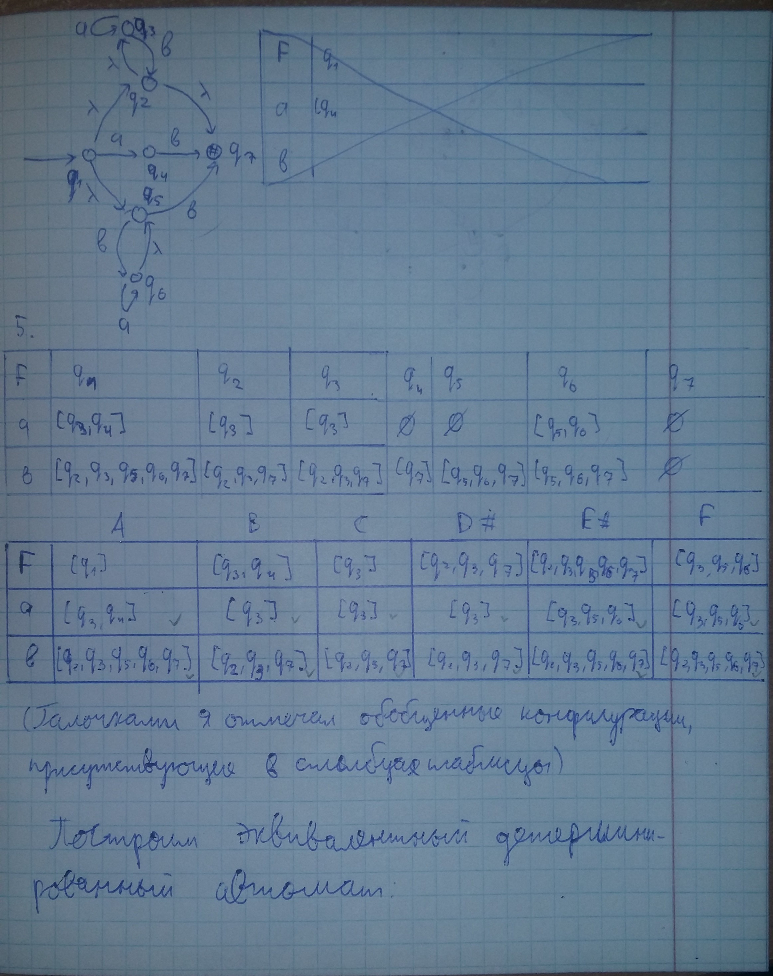 a q3 в
λ
q2 λ
λ
a в
q1 q4 # q7
λ q5
в
в λ
q6
a
F q1
a [q4
в
5.
F q1 q2 q3 q4 q5 q6 q7
a [q3,q4] [q3] [q3] ∅ ∅ [q5,q6] ∅
в [q2,q3,q5,q6,q7] [q2,q3,q7] [q2,q3,q7] [q7] [q5,q6,q7] [q5,q6,q7] ∅
A B C D# E# F
F [q1] [q3,q4] [q3] [q2,q3,q7] [q2,q3,q5,q6,q7] [q3,q5,q6]
a [q3,q4] [q3] [q3] [q3] [q3,q5,q6] [q3,q5,q6]
в [q2,q3,q5,q6,q7] [q2,q3,q7] [q2,q3,q7] [q2,q3,q7] [q2,q3,q5,q6,q7] [q2,q3,q5,q6,q7]
(Галочками я отмечал обобщенные конфигурации,
присутствующие в столбцах таблицы)
Построим эквивалентный детермини-
рованный автомат: